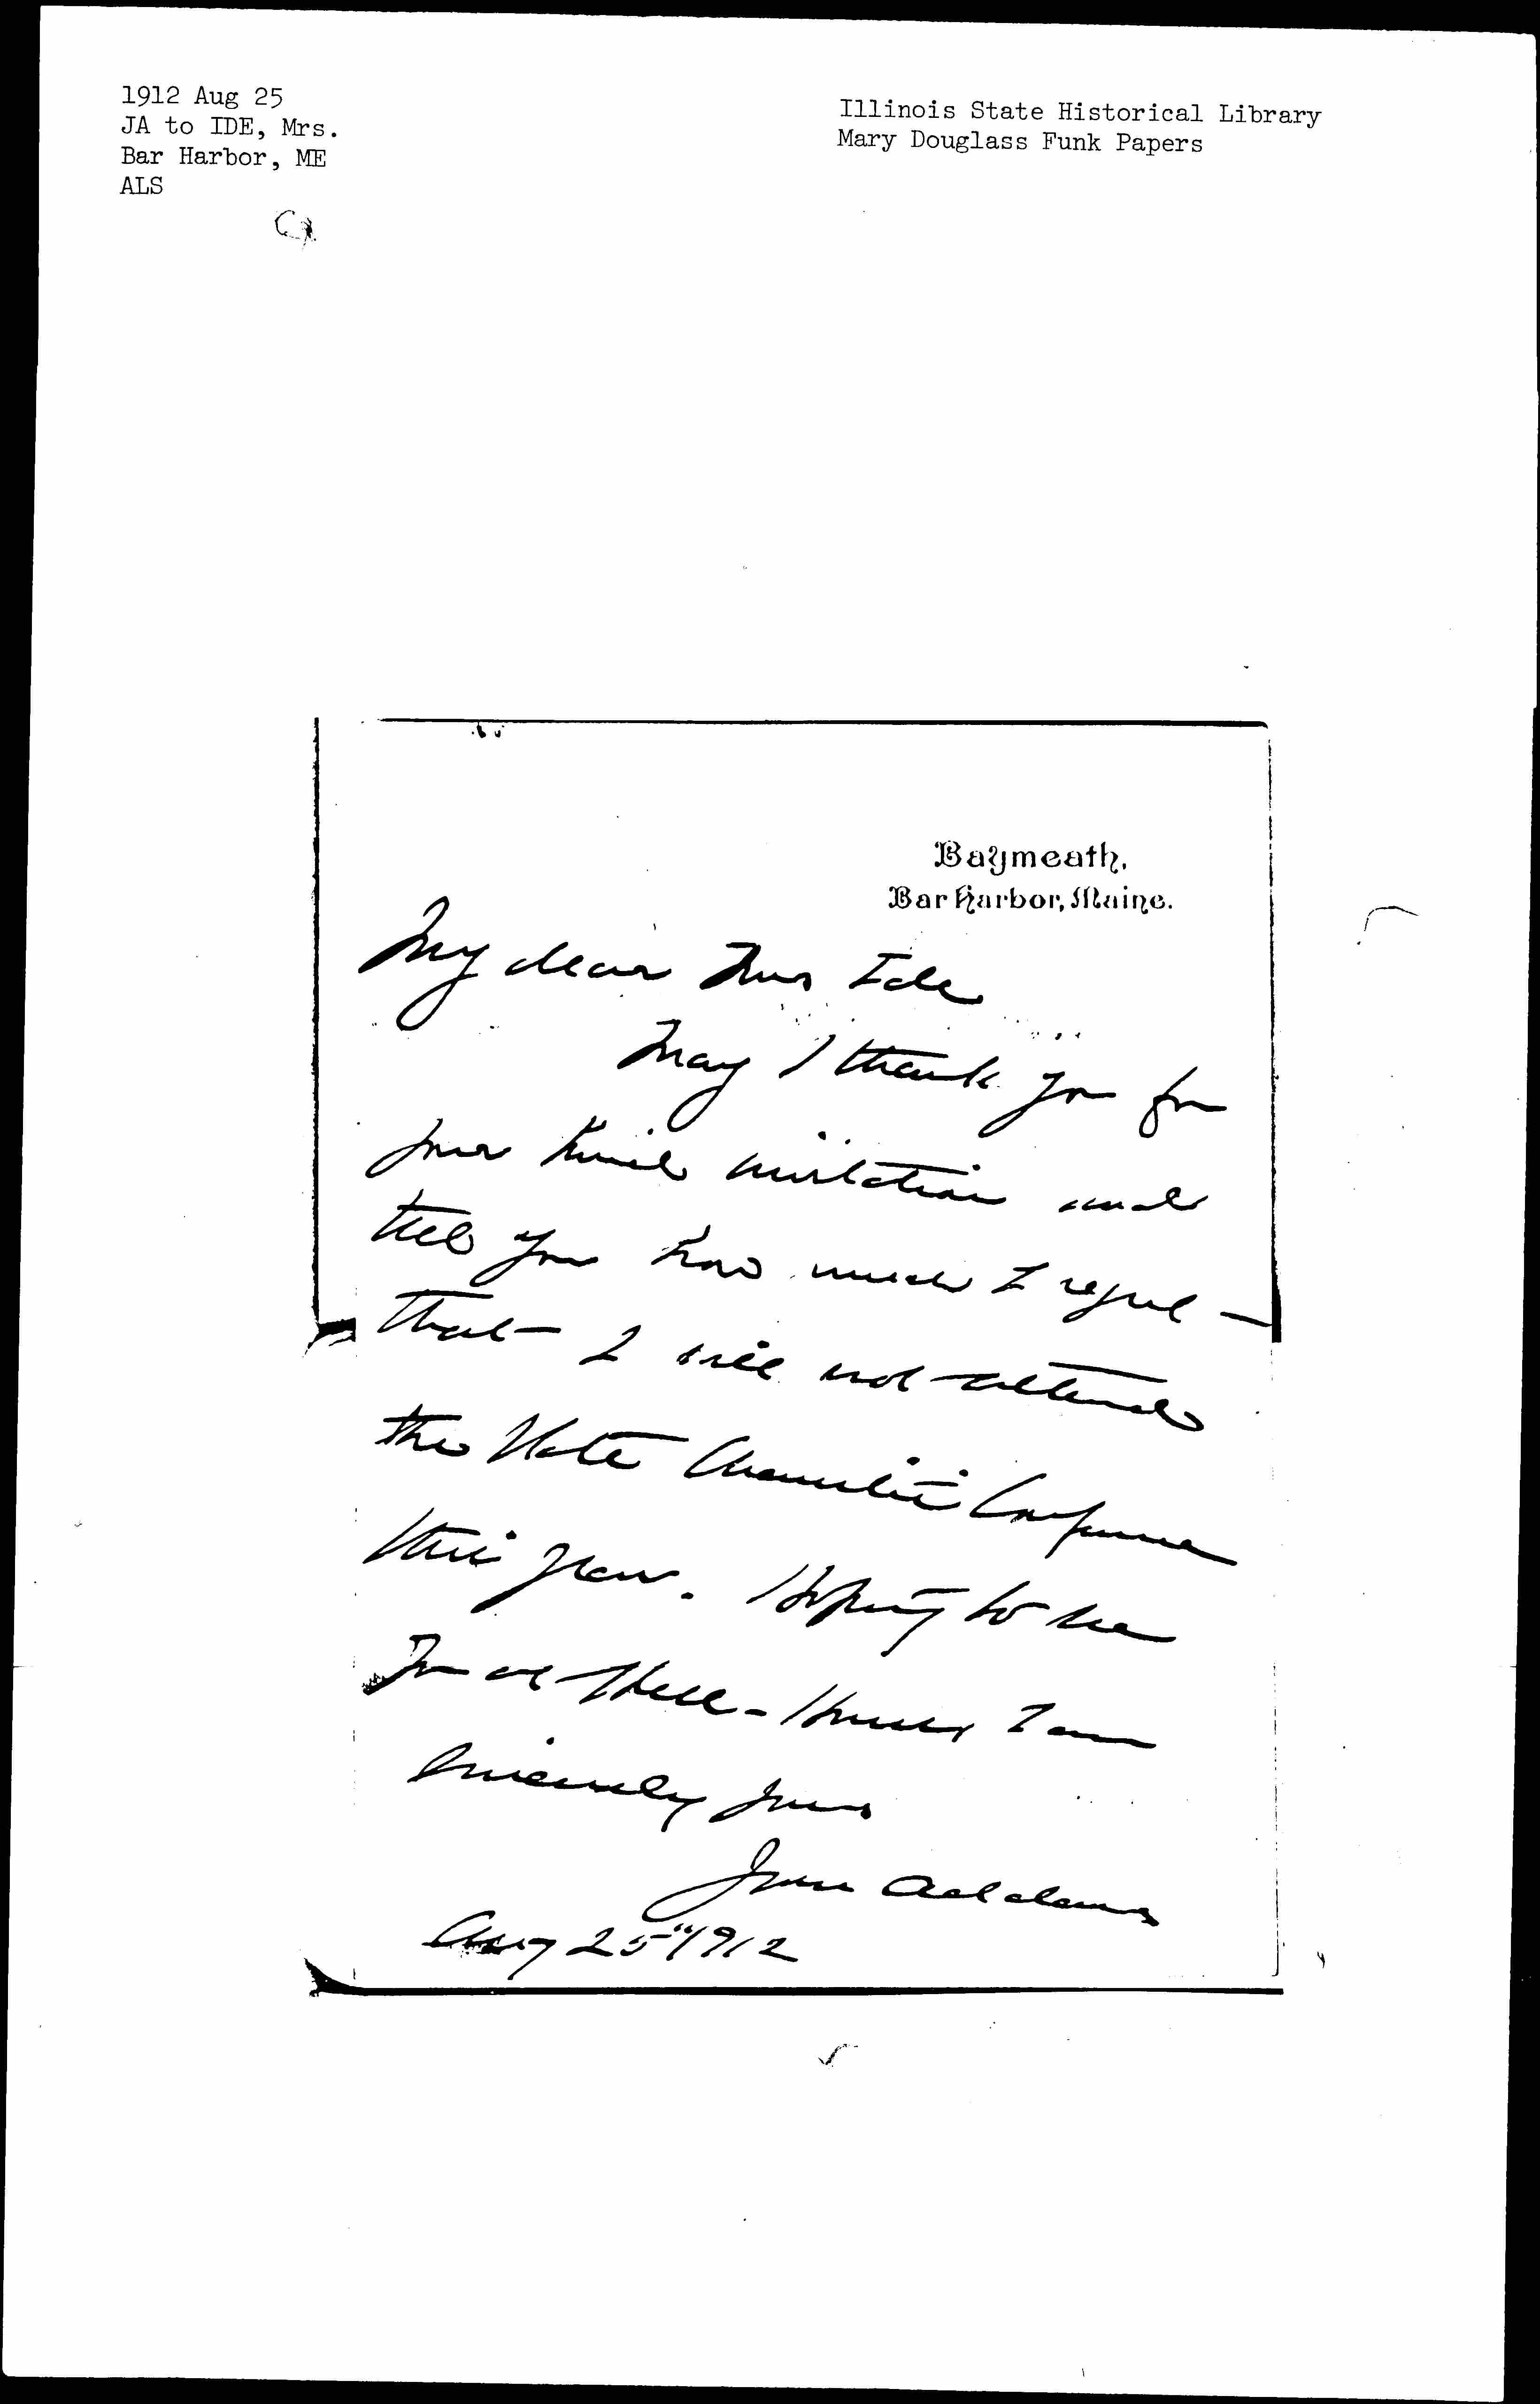 1912 Aug 25
JA to IDE, Mrs.
Bar Harbor, ME
ALS
Illinois State Historical Library
Mary Douglass Funk Papers
Baymeath,
Bar Harbor, Maine.
My dear Mrs Ide
May I thank you for
your kind invitation and
tell you how much I regret
that I will not attend
the State Charities Conference
this year. Hoping to see
you at Hull-House, I am
sincerely yours
Jane Addams
Aug 25" 1912